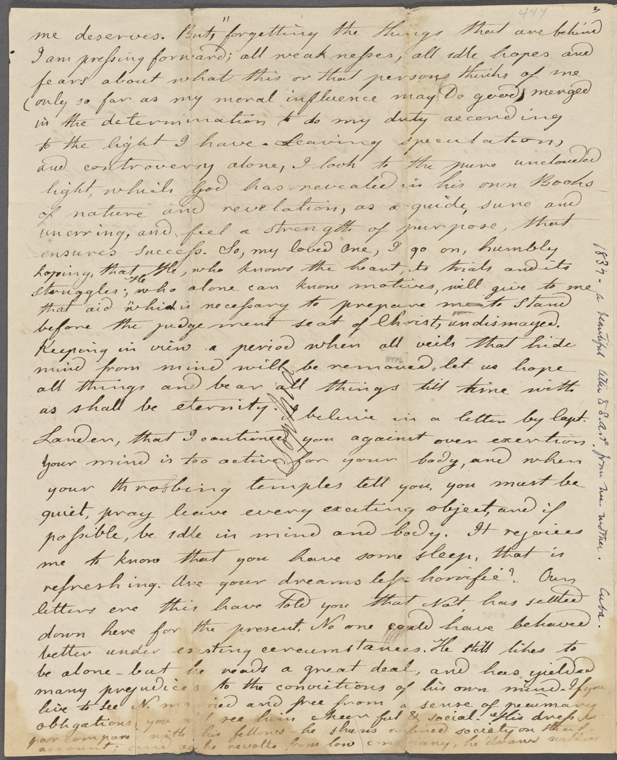 me deserves. But, "forgetting the things that are behind
I am pressing forward; all weaknesses, all idle hopes and
fears about what this or that persons thinks of me
(only so far as my moral influence may do good) merged
in the determination to do my duty according
to the light I have. Leaving speculation,
and controversy alone, I look to the pure unclouded
light, which God has revealed in his own Books
of nature and revelation, as a guide, sure and
unerring, and feel a strength of purpose, that
ensures success. So, my loved one, I go on, humbly
hoping, that He, who knows the heart, its trials and its
struggles; who alone can know motives, will give to me
that aid which is necessary to prepare me to stand
before the judgement seat of Christ, undismayed.
Keeping in view a period when all veils that hide
mind from mind will be removed, let us hope
all things and bear all things till time with
us shall be eternity. I believe in a letter by Capt.
Lander, that I cautioned you against over exertion.
Your mind is too active for your body, and when
your throbbing temples tell you, you must be
quiet, pray leave every exciting object, and if
possible, be idle in mind and body. It rejoices
me to know that you have some sleep, that is
refreshing. Are your dreams less horrific? Our
letters ere this have told you that Nat. has settled
down here for the present. No one could have behaved
better under existing circumstances. He still likes to
be alone - but he reads a great deal, and has yielded
many prejudices to the convictions of his own mind. If you
live to see N. married and free from a sense of pecuniary
obligations, you will see him cheerful & social. His dress
his fellows he shuns society
he revolts from low company, he
1834 - a beautiful letter to E. from mother. Cuba.